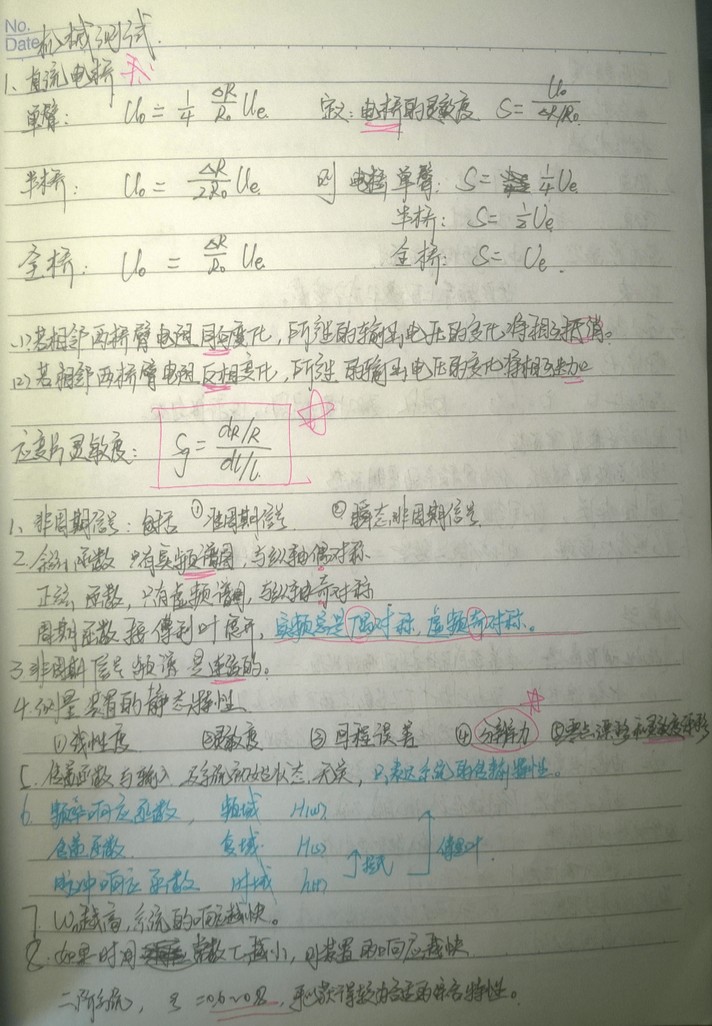 No.
Date
机械测试.
1、直流电桥
单臂: U₀ = 1/4 ΔR/R₀ Ue 定义:电桥的灵敏度 S = U₀/(ΔR/R₀)
半桥: U₀ = ΔR/2R₀ Ue 则 电桥单臂: S = 1/4 Ue
半桥: S = 1/2 Ue
全桥: U₀ = ΔR/R₀ Ue 全桥: S = Ue.
(1)若相邻两桥臂电阻同向变化,所产生的输出电压的变化将相互抵消。
(2)若相邻两桥臂电阻反相变化,所产生的输出电压的变化将相互
应变片灵敏度: Sg = (dR/R)/(dl/l)
1、非周期信号:包括 ①准周期信号 ②瞬态非周期信号
2、余弦函数 只有实频谱图,与纵轴偶对称
正弦函数,只有虚频谱图,与纵轴奇对称
周期函数按傅利叶展开,实频总是偶对称,虚频奇对称。
3 非周期信号频谱是连续的。
4、测量装置的静态特性
①线性度 ②灵敏度 ③回程误差 ④分辨力 ⑤零点漂移和灵敏度漂移
5、传递函数与输入及系统初始状态无关,只表达系统的传输特性。
6、频率响应函数, 频域 H(ω)
传递函数 复域 H(s) 拉氏 傅里叶
脉冲响应函数 时域 h(t)
7 ωn越高,系统的响应越快。
8、如果时间常数τ越小,则装置的响应越快
二阶系统, ξ=0.6~0.8,可以获得较为合适的综合特性。